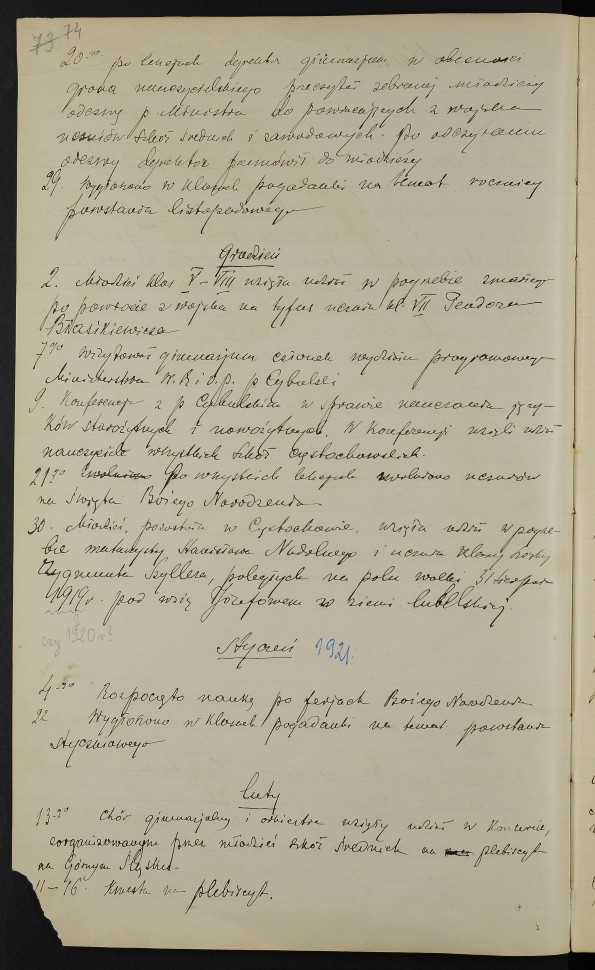 73 74
20-go po lekcjach dyrektor gimnazjum w obecności
grona nauczycielskiego przeczytał zebranej młodzieży
odezwę p. Ministra do powracających z wojska
uczniów szkół średnich i zawodowych. Po odczytaniu
odezwy dyrektor przemówił do młodzieży
29. Wygłoszono w klasach pogadanki na temat rocznicy
powstania listopadowego
Grudzień
2. Młodzież klas V–VIII wzięła udział w pogrzebie zmarłego
po powrocie z wojska na tyfus ucznia kl. VII Teodora
Błasikiewicza
7-go Wizytował gimnazjum członek wydziału programowego
Ministerstwa W.R. i O.P. p Cybulski
9. Konferencja z p Cybulskim w sprawie nauczania języ-
ków starożytnych i nowożytnych. W konferencji wzięli udział
nauczyciele wszystkich szkół częstochowskich.
21-go po wszystkich lekcjach zwolniono uczniów
na Święta Bożego Narodzenia
30. Młodzież, pozostała w Częstochowie, wzięła udział w pogrze-
bie maturzysty Stanisława Nadolnego i ucznia klasy szóstej
Zygmunta Szyllera, poległych na polu walki 31 sierpnia
1919 r. pod wsią Józefowem w ziemi lubelskiej.
czy 1920 r?
Styczeń 1921.
4-go Rozpoczęto naukę po ferjach Bożego Narodzenia
22 Wygłoszono w klasach pogadanki na temat powstania
styczniowego
Luty
13-go Chór gimnazjalny i orkiestra wzięły udział w koncercie,
zorganizowanym przez młodzież szkół średnich na plebiscyt
na Górnym Śląsku.
11–16. Kwesta na plebiscyt.